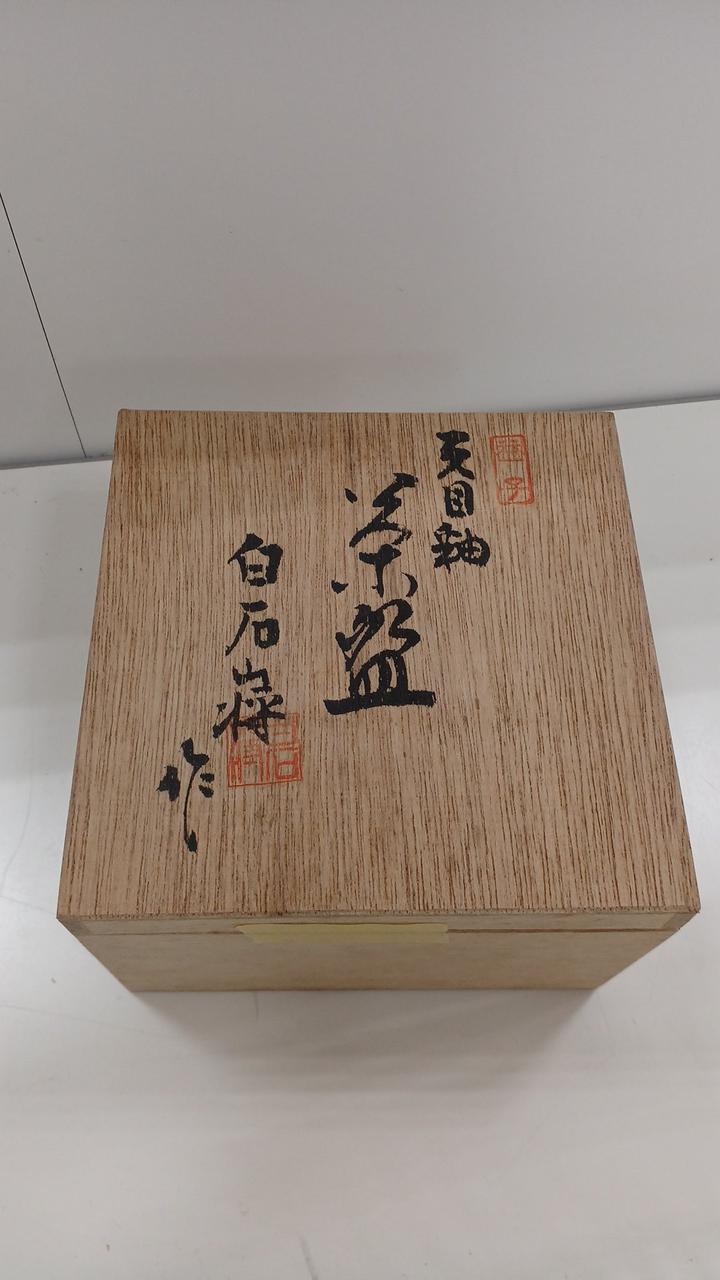 天目釉
茶盌
白石
作